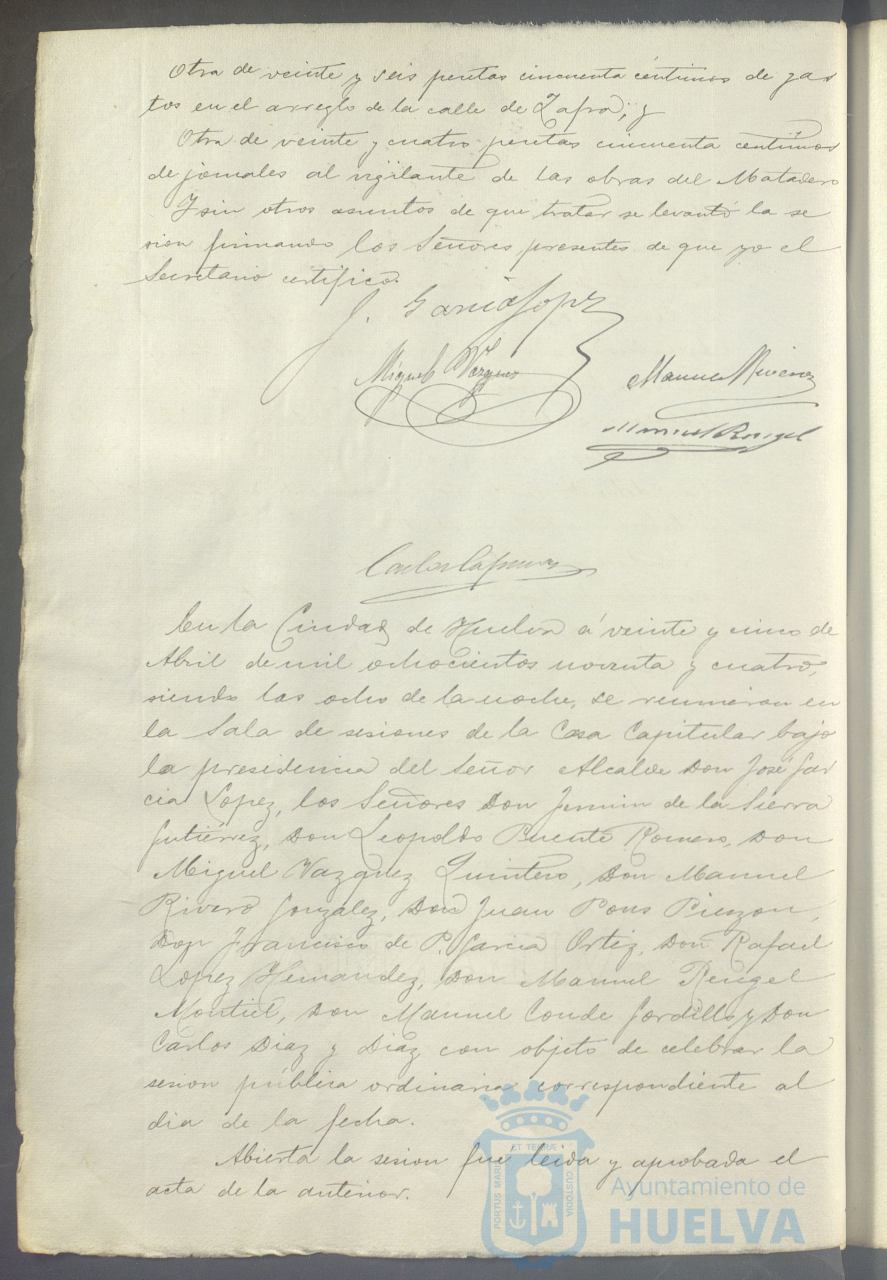 Otra de veinte y seis pesetas cincuenta céntimos de gas
tos en el arreglo de la calle de Zafra; y
Otra de veinte y cuatro pesetas cincuenta centimos
de jornales al vigilante de las obras del Matadero
Y sin otros asuntos de que tratar se levantó la se
sion firmando los Señores presentes de que yo el
Secretario certifico.
J. Garcia Lopez
Miguel Vazquez
Manuel Rivero
Manuel Rengel
En la Ciudad de Huelva á veinte y cinco de
Abril de mil ochocientos noventa y cuatro,
siendo las ocho de la noche, se reunieron en
la Sala de sesiones de la Casa Capitular bajo
la presidencia del Señor Alcalde Don José Gar
cia Lopez, los Señores Don Fermin de la Sierra
Gutiérrez, Don Leopoldo Puente Romero, Don
Miguel Vazquez Quintero, Don Manuel
Rivero Gonzalez, Don Juan Pons Pinzon,
Don Francisco de P. Garcia Ortiz, Don Rafael
Lopez Hernandez, Don Manuel Rengel
Montiel, Don Manuel Conde Gordillo y Don
Carlos Diaz y Diaz con objeto de celebrar la
sesion pública ordinaria correspondiente al
dia de la fecha.
Abierta la sesion fue leida y aprobada el
acta de la anterior.
PORTUS MARIS ET TERRÆ CUSTODIA
Ayuntamiento de
HUELVA